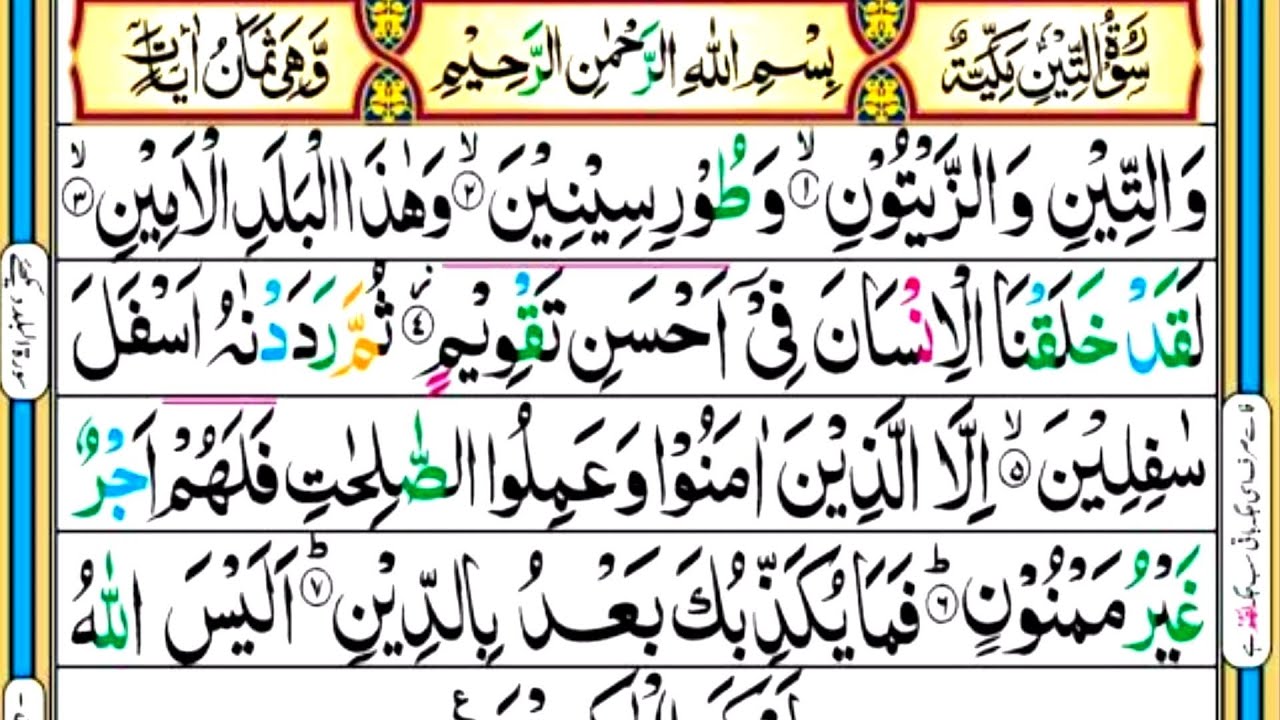 سُوْرَةُ التِّيْنِ مَكِّيَّةٌ بِسْمِ اللّٰهِ الرَّحْمٰنِ الرَّحِيْمِ وَّهِىَ ثَمَانُ اٰيَاتٍ
وَالتِّيْنِ وَالزَّيْتُوْنِ ۙ۝۱ وَطُوْرِ سِيْنِيْنَ ۙ۝۲ وَهٰذَا الْبَلَدِ الْاَمِيْنِ ۙ۝۳
لَقَدْ خَلَقْنَا الْاِنْسَانَ فِىْۤ اَحْسَنِ تَقْوِيْمٍ ۝۴ ثُمَّ رَدَدْنٰهُ اَسْفَلَ
سٰفِلِيْنَ ۙ۝۵ اِلَّا الَّذِيْنَ اٰمَنُوْا وَعَمِلُوا الصّٰلِحٰتِ فَلَهُمْ اَجْرٌ
غَيْرُ مَمْنُوْنٍ ؕ۝۶ فَمَا يُكَذِّبُكَ بَعْدُ بِالدِّيْنِ ؕ۝۷ اَلَيْسَ اللّٰهُ